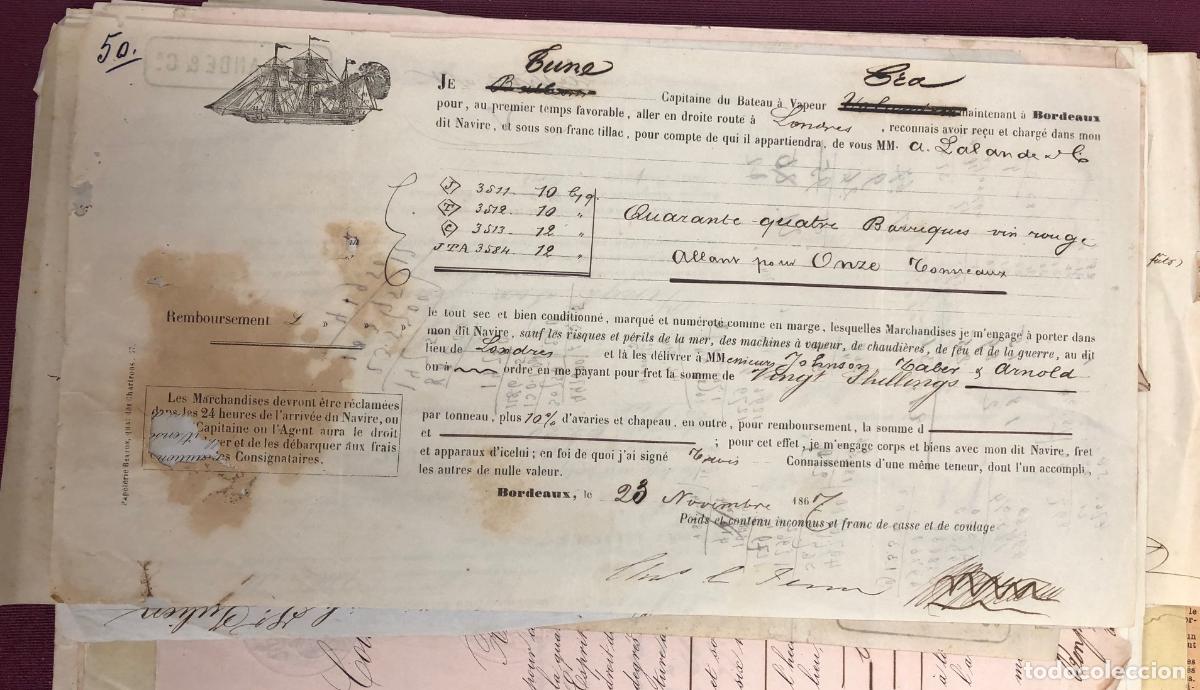 50.
JE Tune Capitaine du Bateau à Vapeur Cea maintenant à Bordeaux
pour, au premier temps favorable, aller en droite route à Londres, reconnais avoir reçu et chargé dans mon
dit Navire, et sous son franc tillac, pour compte de qui il appartiendra, de vous MM. A. Lalande & Co
J 3511 10 bques
T 3512 10 "
C 3513 12 "
JTA 3584 12 "
Quarante quatre Barriques vin rouge
Allant pour Onze Tonneaux
Remboursement £ " " "
le tout sec et bien conditionné, marqué et numéroté comme en marge, lesquelles Marchandises je m'engage à porter dans
mon dit Navire, sauf les risques et périls de la mer, des machines à vapeur, de chaudières, de feu et de la guerre, au dit
lieu de Londres et là les délivrer à MMessieurs Johnson Taber & Arnold
ou à ordre en me payant pour fret la somme de Vingt Shillings
par tonneau, plus 10% d'avaries et chapeau, en outre, pour remboursement, la somme d
et ; pour cet effet, je m'engage corps et biens avec mon dit Navire, fret
et apparaux d'icelui; en foi de quoi j'ai signé Trois Connaissements d'une même teneur, dont l'un accompli,
les autres de nulle valeur.
Bordeaux, le 23 Novembre 1867
Poids et contenu inconnus et franc de casse et de coulage
Les Marchandises devront être réclamées
dans les 24 heures de l'arrivée du Navire, ou
Capitaine ou l'Agent aura le droit
er et de les débarquer aux frais
es Consignataires.
Papeterie quai des Chartrons, 37.
ANDE & Co
fûts)
St Julien
todocoleccion